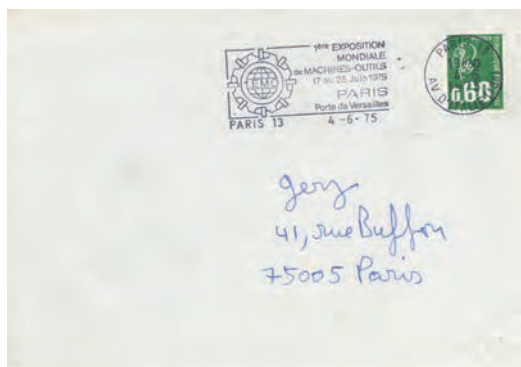 1ère EXPOSITION
MONDIALE
de MACHINES-OUTILS
17 au 26 Juin 1975
PARIS
Porte de Versailles
EMO
PARIS 13 4-6-75
0,60
gerz
41, rue Buffon
75005 Paris